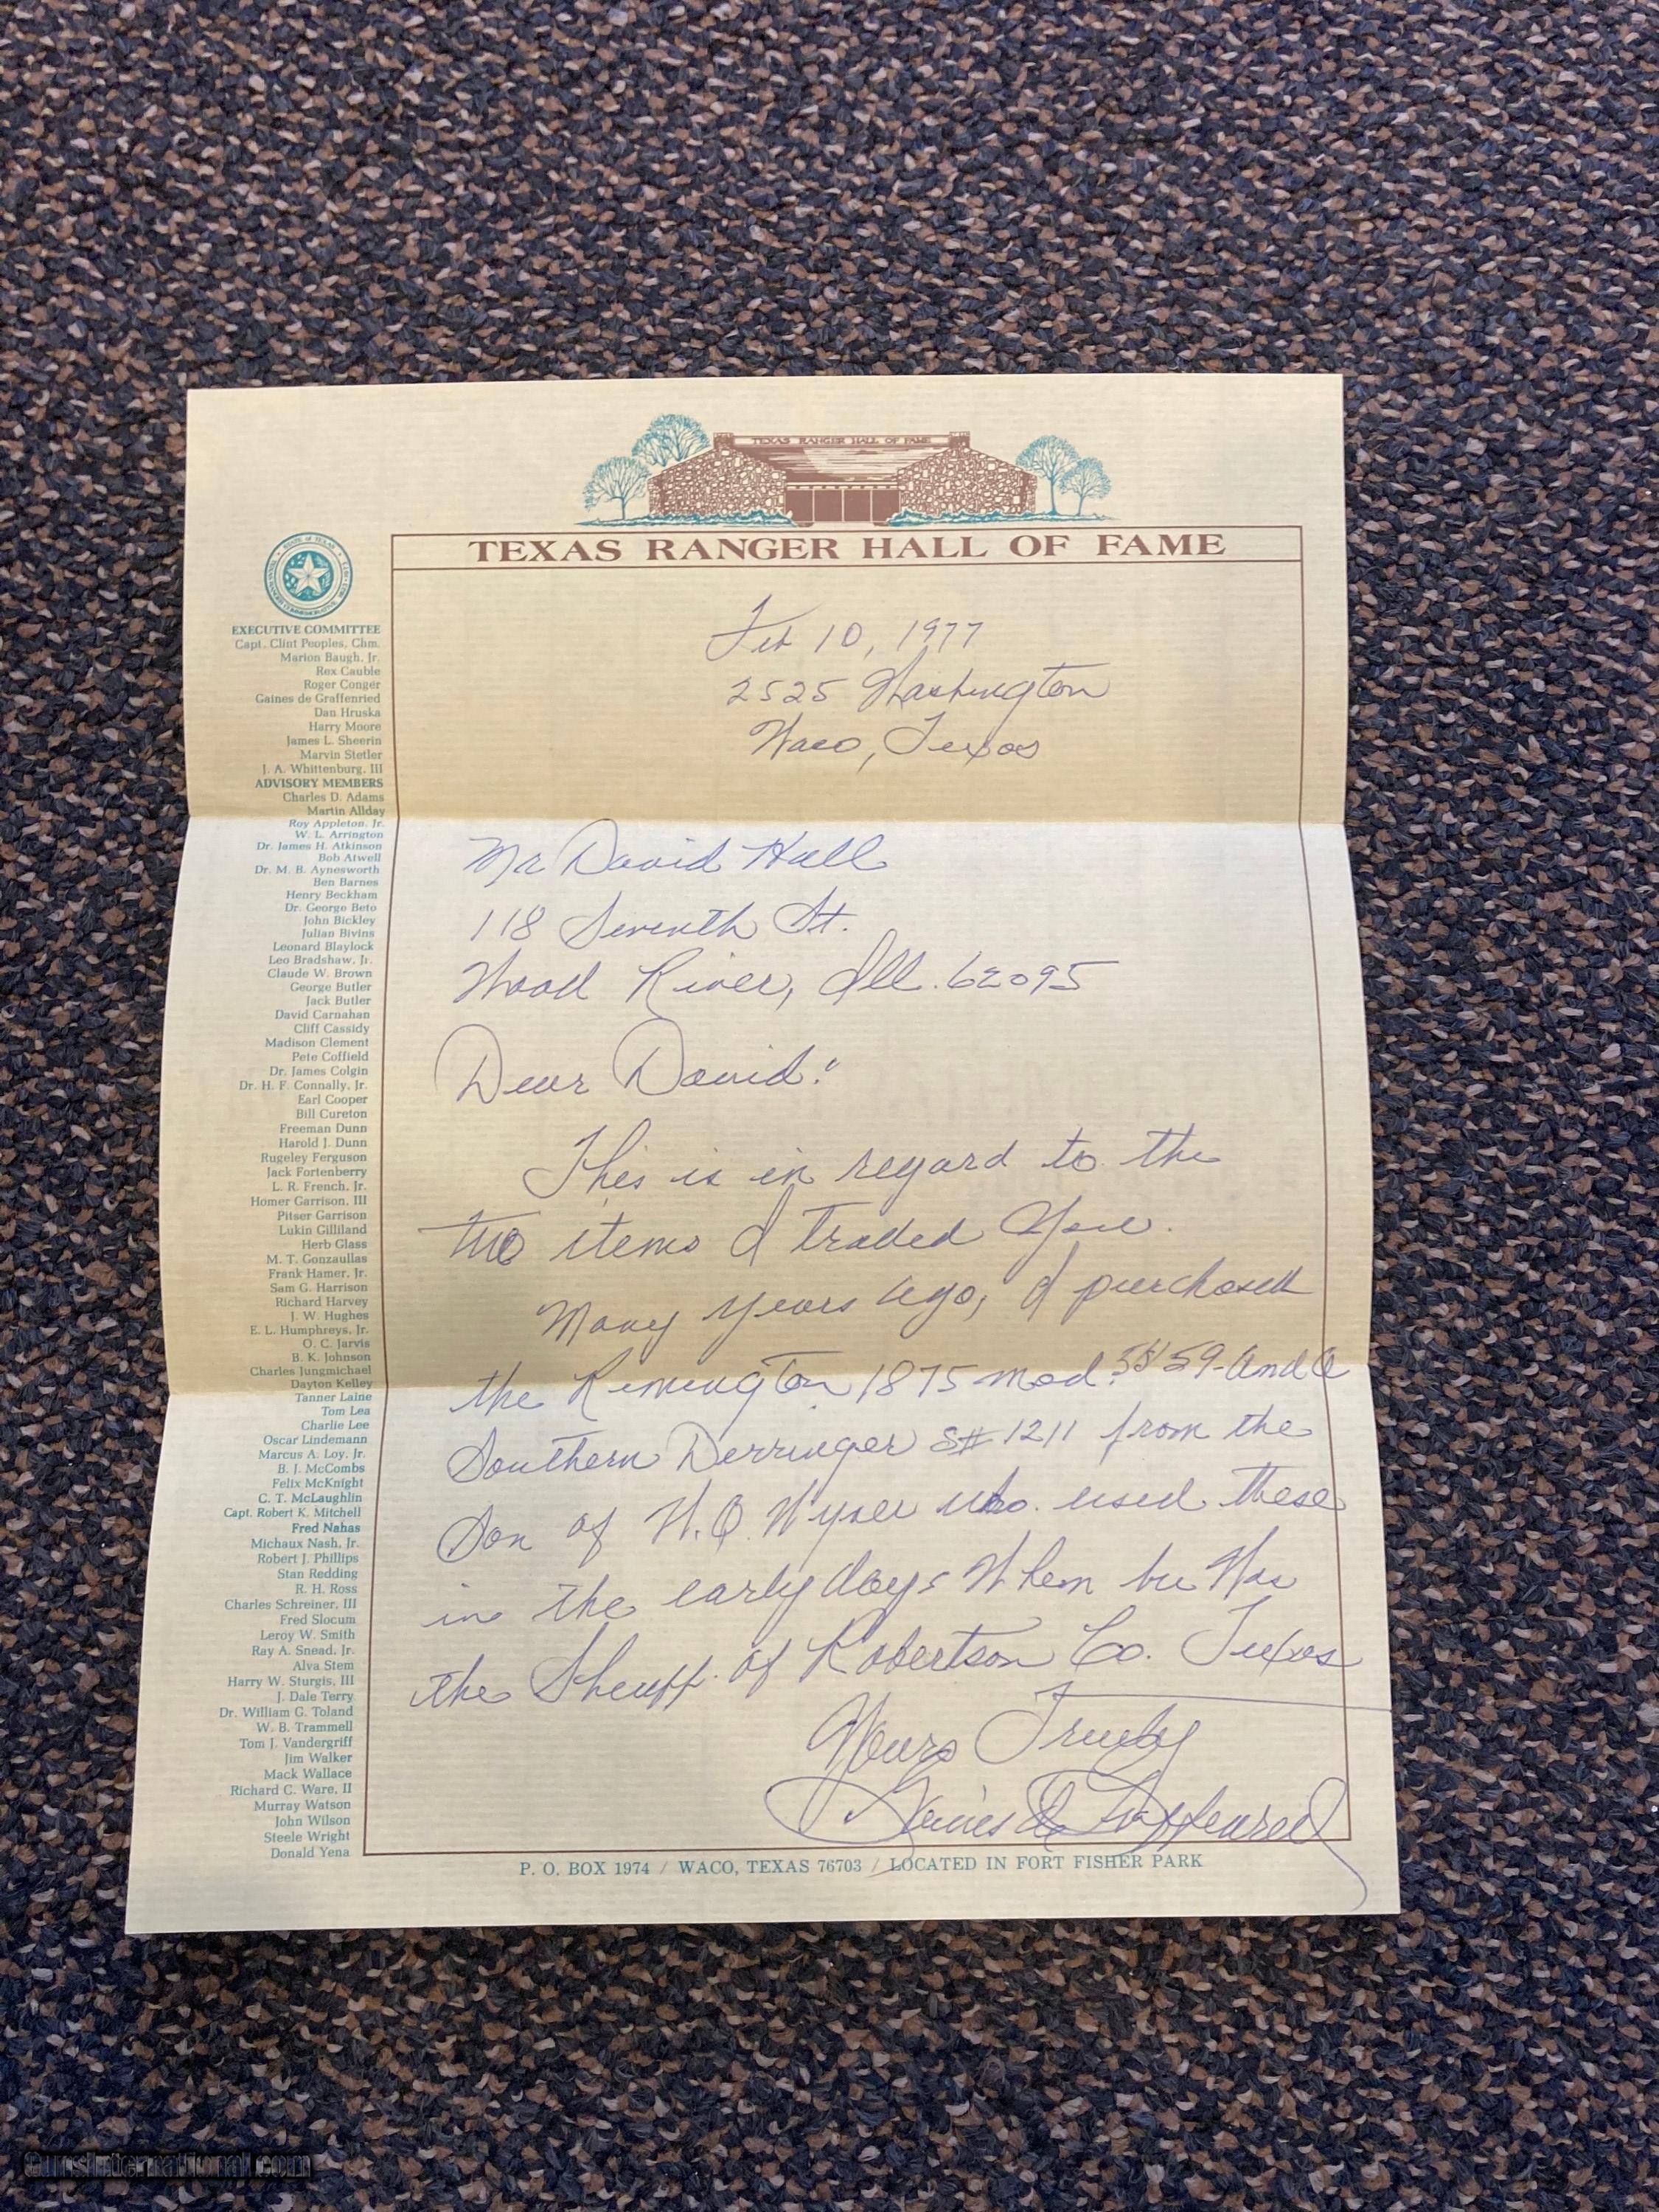 TEXAS RANGER HALL OF FAME
TEXAS RANGER HALL OF FAME
EXECUTIVE COMMITTEE
Capt. Clint Peoples, Chm.
Marion Baugh, Jr.
Rex Cauble
Roger Conger
Gaines de Graffenried
Dan Hruska
Harry Moore
James L. Sheerin
Marvin Stetler
J. A. Whittenburg, III
ADVISORY MEMBERS
Charles D. Adams
Martin Allday
Roy Appleton, Jr.
W. L. Arrington
Dr. James H. Atkinson
Bob Atwell
Dr. M. B. Aynesworth
Ben Barnes
Henry Beckham
Dr. George Beto
John Bickley
Julian Bivins
Leonard Blaylock
Leo Bradshaw, Jr.
Claude W. Brown
George Butler
Jack Butler
David Carnahan
Cliff Cassidy
Madison Clement
Pete Coffield
Dr. James Colgin
Dr. H. F. Connally, Jr.
Earl Cooper
Bill Cureton
Freeman Dunn
Harold J. Dunn
Rugeley Ferguson
Jack Fortenberry
L. R. French, Jr.
Homer Garrison, III
Pitser Garrison
Lukin Gilliland
Herb Glass
M. T. Gonzaullas
Frank Hamer, Jr.
Sam G. Harrison
Richard Harvey
J. W. Hughes
E. L. Humphreys, Jr.
O. C. Jarvis
B. K. Johnson
Charles Jungmichael
Dayton Kelley
Tanner Laine
Tom Lea
Charlie Lee
Oscar Lindemann
Marcus A. Loy, Jr.
B. J. McCombs
Felix McKnight
C. T. McLaughlin
Capt. Robert K. Mitchell
Fred Nahas
Michaux Nash, Jr.
Robert J. Phillips
Stan Redding
R. H. Ross
Charles Schreiner, III
Fred Slocum
Leroy W. Smith
Ray A. Snead, Jr.
Alva Stem
Harry W. Sturgis, III
J. Dale Terry
Dr. William G. Toland
W. B. Trammell
Tom J. Vandergriff
Jim Walker
Mack Wallace
Richard C. Ware, II
Murray Watson
John Wilson
Steele Wright
Donald Yena
Feb 10, 1977
2525 Washington
Waco, Texas
Mr David Hall
118 Seventh St.
Wood River, Ill. 62095
Dear David:
This is in regard to the
two items I traded you.
Many years ago, I purchased
the Remington 1875 mod. And a
Southern Derringer S# 1211 from the
Son of who used these
in the early days when he was
the Sheriff of Robertson Co. Texas
Yours Truly
Gaines de Graffenried
P. O. BOX 1974 / WACO, TEXAS 76703 / LOCATED IN FORT FISHER PARK
GunsInternational.com